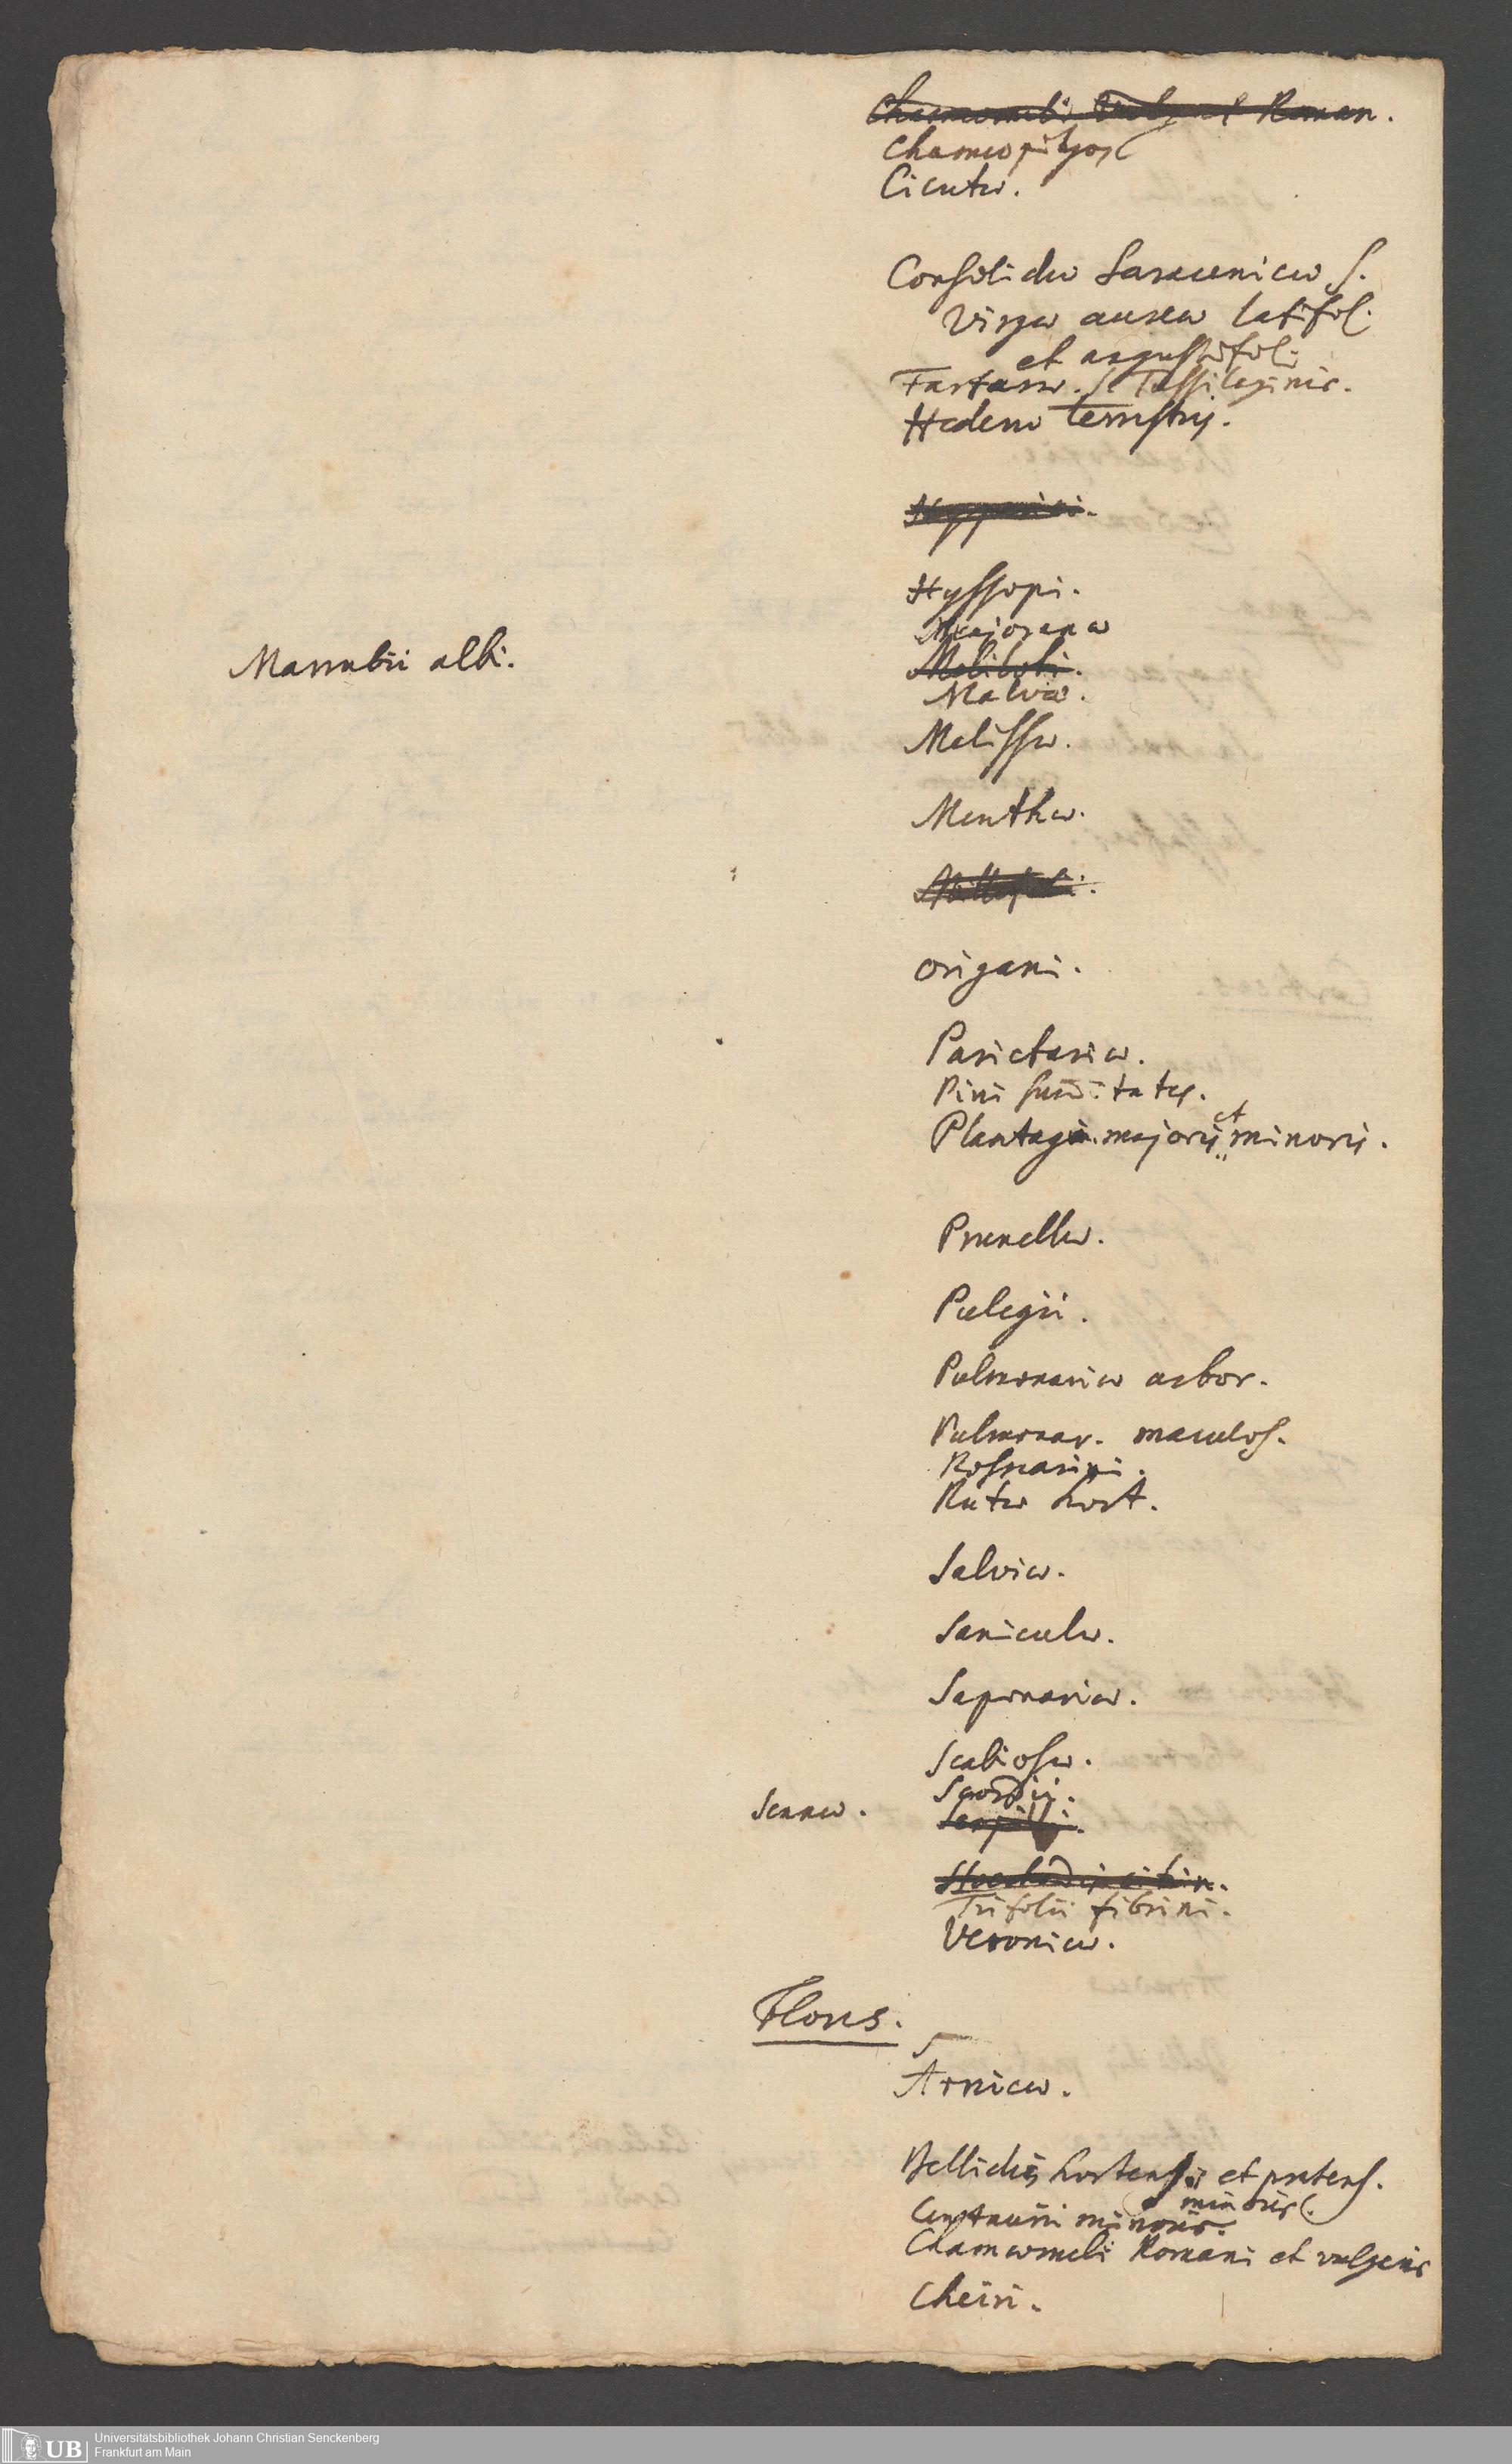 Chamaemeli vulg. et Roman.
Chamaepityos
Cicutae.
Consolidae Saracenicae s.
Virgae aureae latifol.
et angustifol.
Farfarae. s. Tussilaginis.
Hederae terrestris.
Hyperici.
Hyssopi.
Majoranae
Marrubii albi.
Meliloti.
Malvae.
Melissae.
Menthae.
Millefolii.
Origani.
Parietariae.
Pini sum̅itates.
Plantagin. majoris et minoris.
Prunellae.
Pulegii.
Pulmonariae arbor.
Pulmonar. maculos.
Rosmarini.
Rutae hort.
Salviae.
Saniculae.
Saponariae.
Scabiosae.
Scordii.
Sennae.
Serpilli.
Stoechadis citrin.
Trifolii fibrini.
Veronicae.
Flores.
Arnicae.
Bellidis hortensis et pratens.
minoris.
Centaurii minoris.
Chamaemeli Romani et vulgaris
Cheiri.
UB
Universitätsbibliothek Johann Christian Senckenberg
Frankfurt am Main